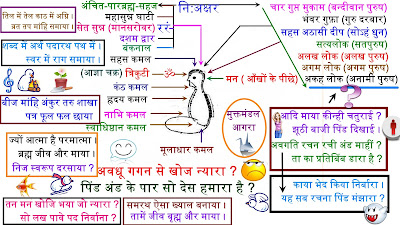 तिल में तेल काठ में अग्नि।
व्रत तप माहि समाया।
शब्द में अर्थ पदारथ पथ में।
स्वर में राग समाया।
बीज माहि अंकुर तरु शाखा
पत्र फूल फल छाया
ज्यों आत्मा है परमात्मा।
ब्रह्म जीव और माया।
निज स्वरूप दरसाया ?
तन मन खोजि भया जो न्यारा ?
सो लख पाये पद निर्वाना ?
अंचित-पारब्रह्म-सहज
महासुन्न घाटी
सेत सुन्न (मानसरोवर) ररं-
दशम द्वार
बंकनाल
सहस कमल
(आज्ञा चक्र) त्रिकुटी
कंठ कमल
हृदय कमल
नाभि कमल
स्वाधिष्ठान कमल
मूलाधार कमल
नि:अक्षर
मन ( आँखों के पीछे)
मुक्तमंडल
आगरा
चार गुप्त मुकाम (बन्दीवान पुरुष)
भंवर गुफ़ा (गुरु दरवार)
सहस अठासी दीप (सोऽहं धुन)
सत्यलोक (सतपुरुष)
अलख लोक (अलख पुरुष)
अगम लोक (अगम पुरुष)
अकह लोक (अनामी पुरुष)
?
आदि माया कीन्ही चतुराई ?
झूठी बाजी पिंड दिखाई ।
अवगति रचन रची अंड माहीं ?
ता का प्रतिबिंब डारा है ?
अवधू गगन से खोज न्यारा ?
पिंड अंड के पार सो देस हमारा है ?
समरथ ऐसा ख्याल बनाया ।
तामें जीव बृह्म और माया ।
काया भेद किया निर्वारा ।
यह सब रचना पिंड मंझारा ?